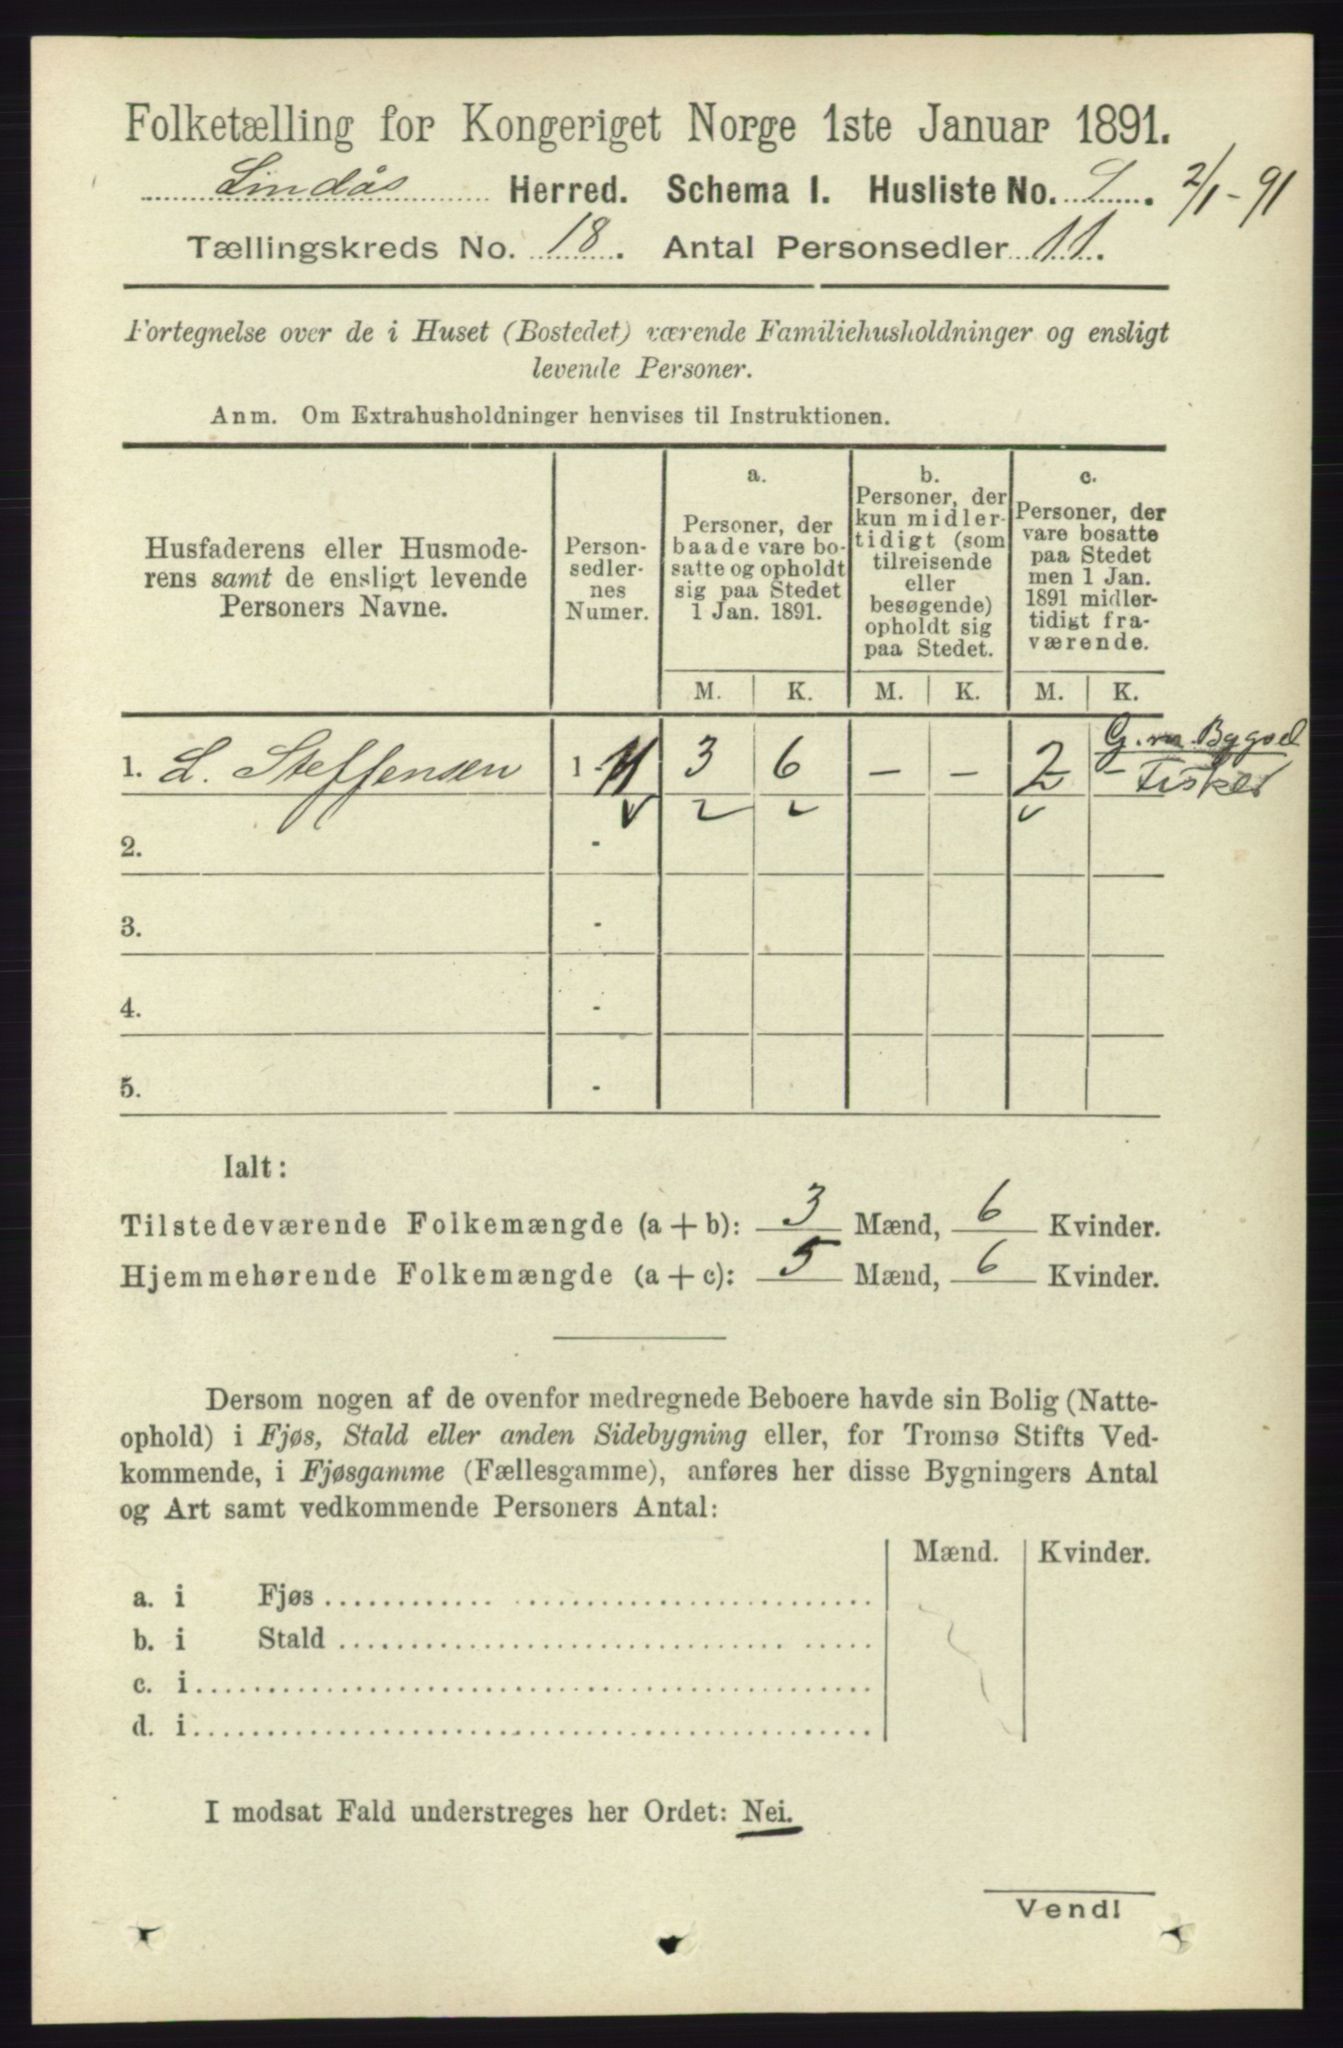 Folketælling for Kongeriget Norge 1ste Januar 1891.
Lindås Herred. Schema I. Husliste No. . 2/1-91
Tællingskreds No. 18. Antal Personsedler 11.
Fortegnelse over de i Huset (Bostedet) værende Familiehusholdninger og ensligt
levende Personer.
Anm. Om Extrahusholdninger henvises til Instruktionen.
Husfaderens eller Husmode-
rens samt de ensligt levende
Personers Navne.
Person-
sedler-
nes
Numer.
a.
Personer, der
baade vare bo-
satte og opholdt
sig paa Stedet
1 Jan. 1891.
b.
Personer, der
kun midler-
tidigt (som
tilreisende
eller
besøgende)
opholdt sig
paa Stedet.
c.
Personer, der
vare bosatte
paa Stedet
men 1 Jan.
1891 midler-
tidigt fra-
værende.
M. K. M. K. M. K.
G. m. Bygsel
1. L. Steffensen 1-11 3 6 - - 2 - Fisker
2. -
3. -
4. -
5. -
Ialt:
Tilstedeværende Folkemængde (a + b): 3 Mænd, 6 Kvinder.
Hjemmehørende Folkemængde (a + c): 5 Mænd, 6 Kvinder.
Dersom nogen af de ovenfor medregnede Beboere havde sin Bolig (Natte-
ophold) i Fjøs, Stald eller anden Sidebygning eller, for Tromsø Stifts Ved-
kommende, i Fjøsgamme (Fællesgamme), anføres her disse Bygningers Antal
og Art samt vedkommende Personers Antal:
Mænd. Kvinder.
a. i Fjøs
b. i Stald
c. i
d. i
I modsat Fald understreges her Ordet: Nei.
Vend!